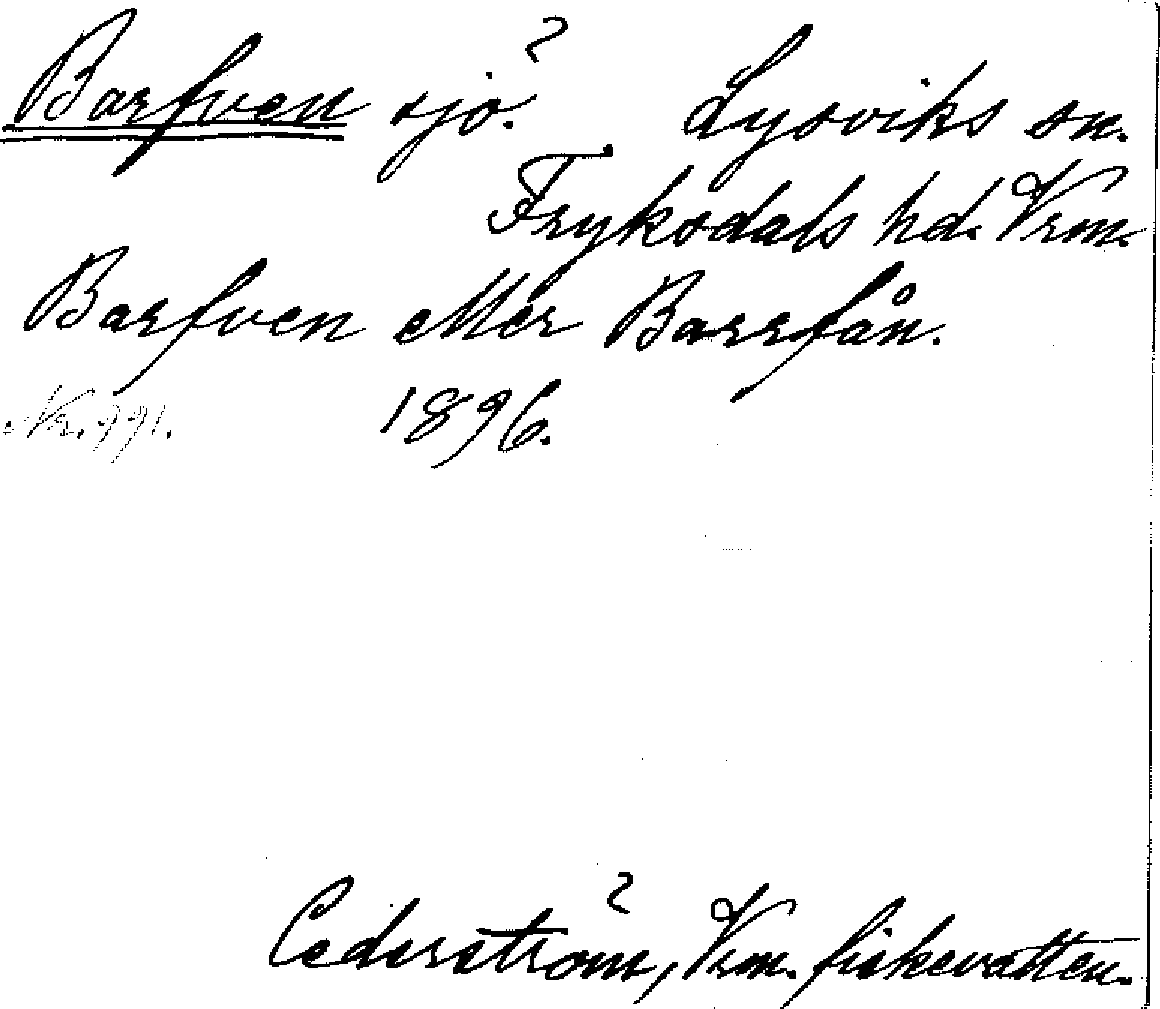 Barfven sjö. Lysviks sn.
Fryksdals hd. Vrm.
Barfven eller Barrfån.
Nr. 991. 1896.
Cederström, Vrm. fiskevatten.